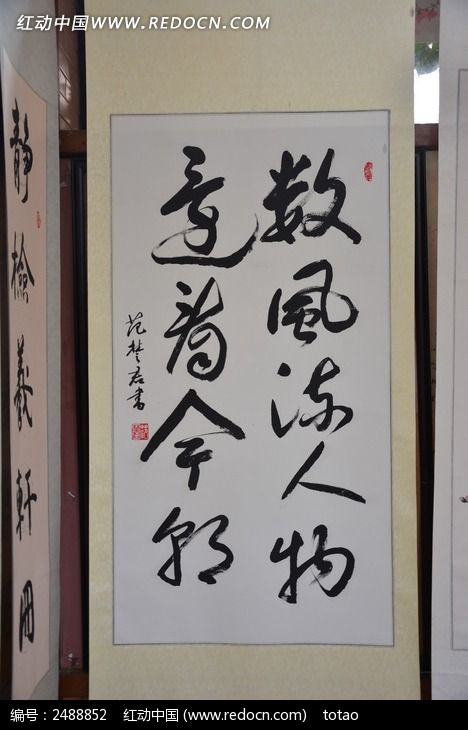 红动中国 WWW.REDOCN.COM
数風流人物
還看今朝
范楚君書
靜檢羲軒冊
编号：2488852 红动中国 (www.redocn.com) totao